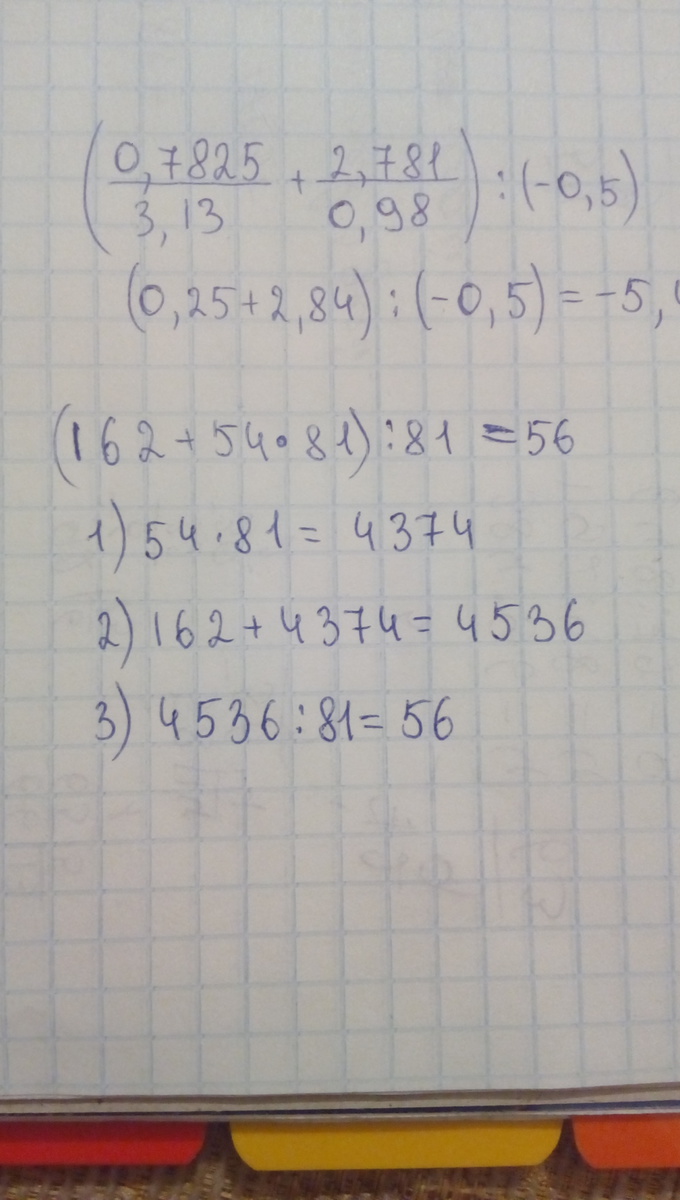 (0,7825/3,13 + 2,781/0,98) : (-0,5)
(0,25+2,84) : (-0,5) = -5,
(162 + 54 • 81) : 81 = 56
1) 54 · 81 = 4374
2) 162 + 4374 = 4536
3) 4536 : 81 = 56